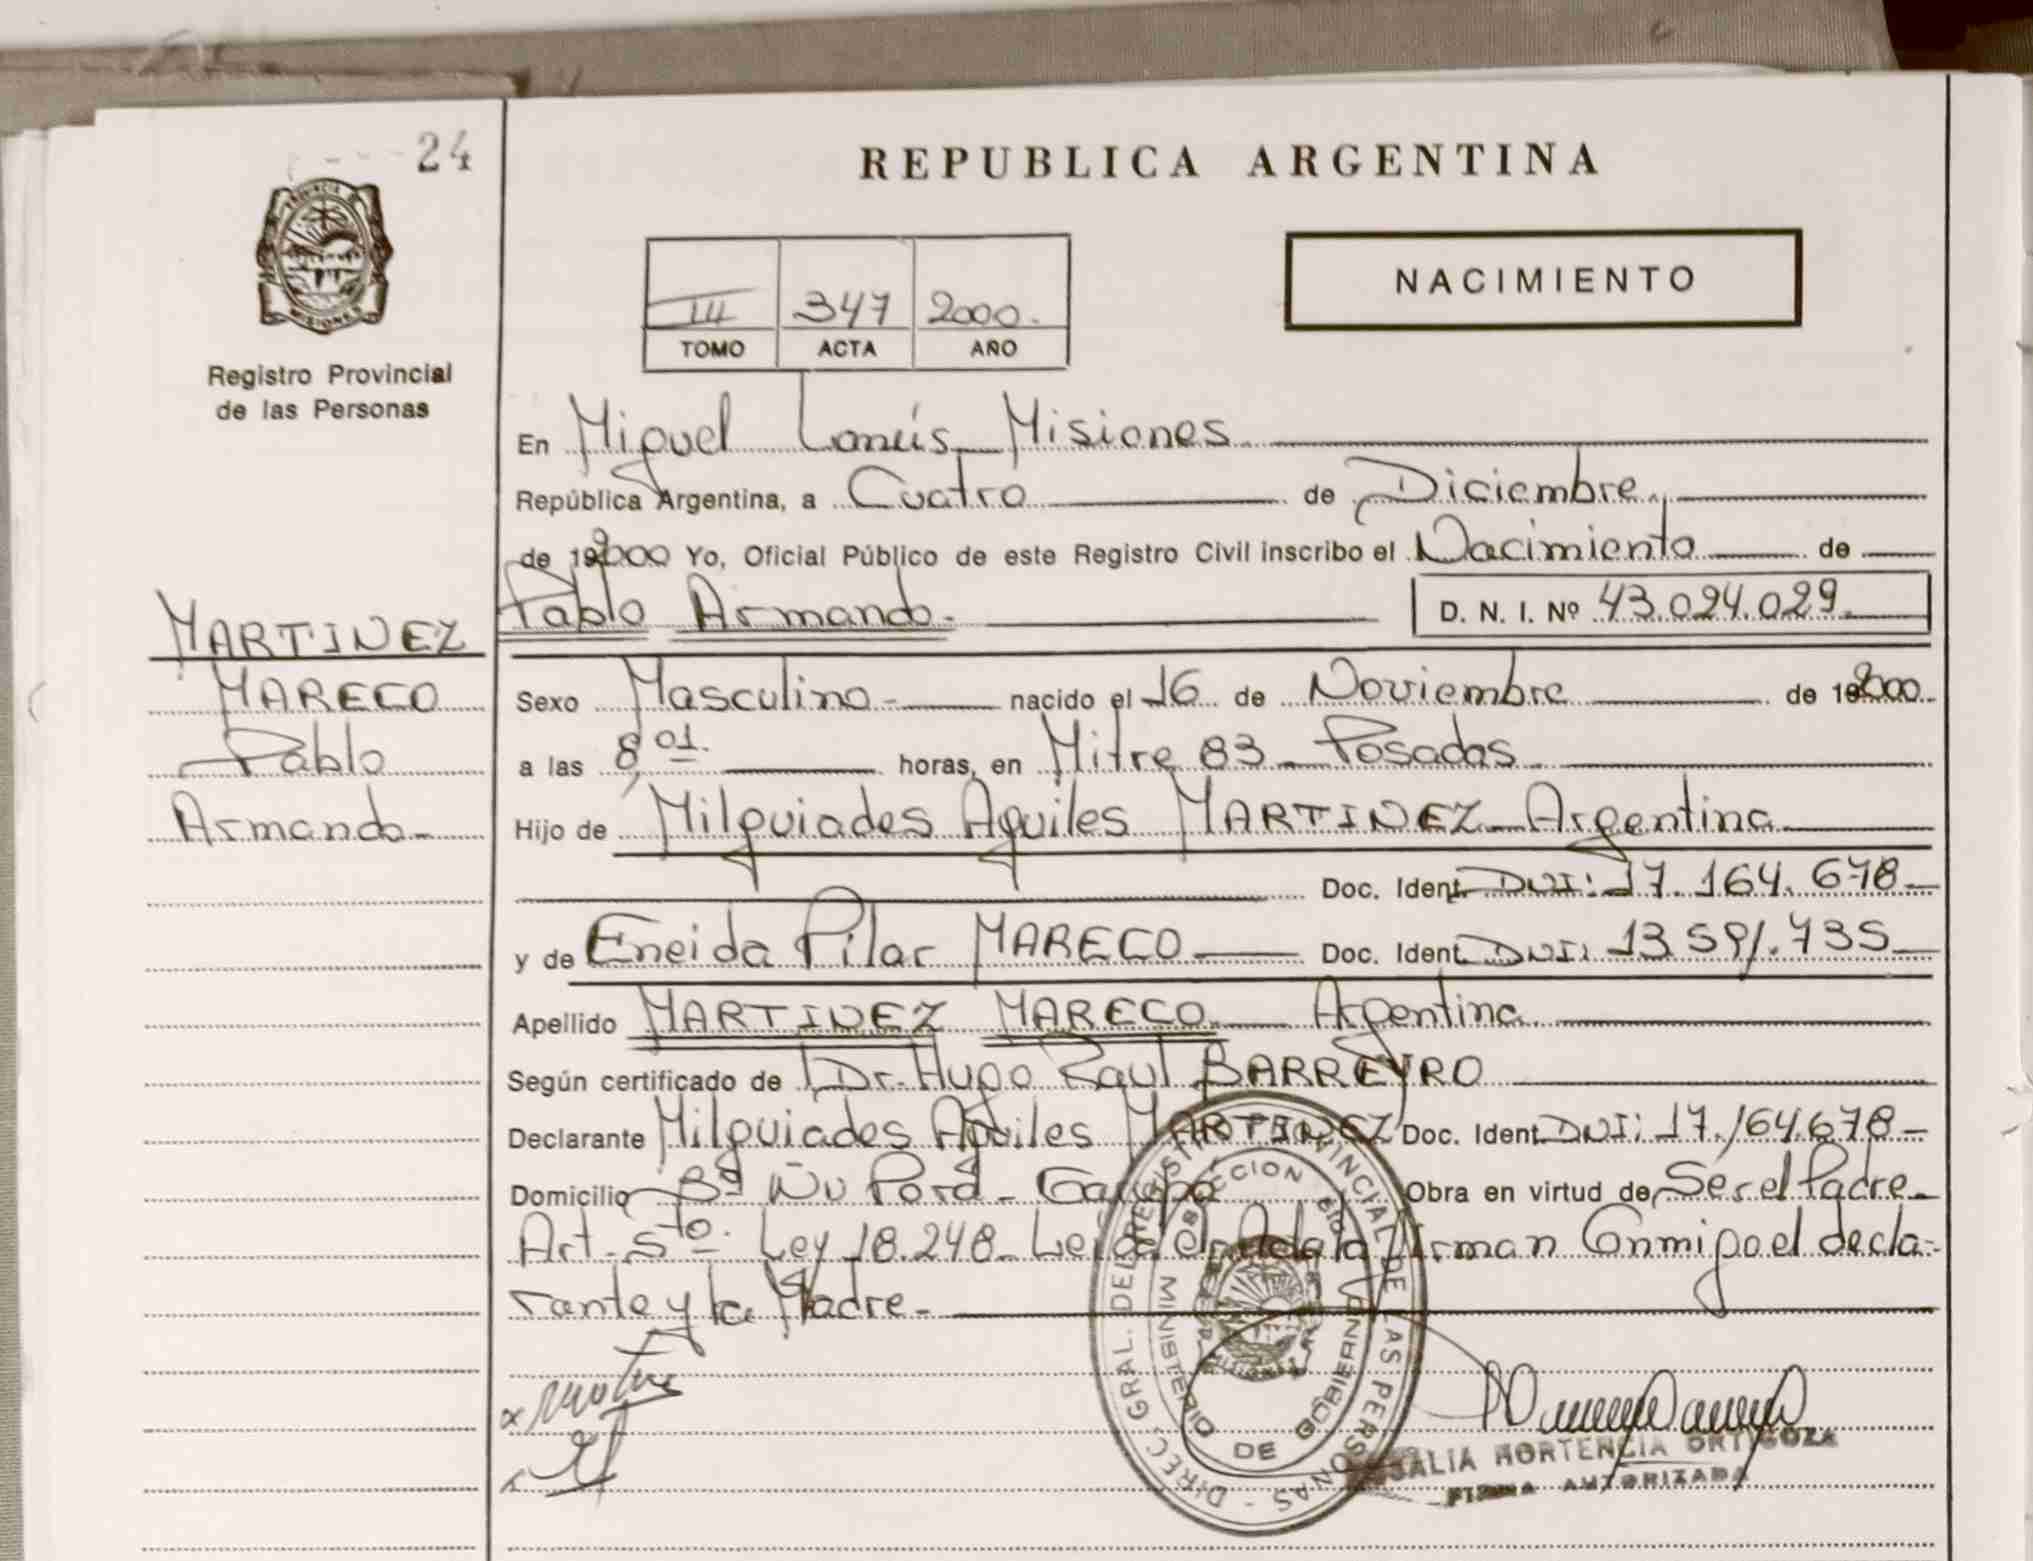 24
REPUBLICA ARGENTINA
PROVINCIA DE
MISIONES
Registro Provincial
de las Personas
III 347 2000.
TOMO ACTA AÑO
NACIMIENTO
En Miguel Lanús Misiones
República Argentina, a Cuatro de Diciembre
de 192000 Yo, Oficial Público de este Registro Civil inscribo el Nacimiento de
Pablo Armando. D. N. I. Nº 43.024.029
MARTINEZ
MARECO
Pablo
Armando
Sexo Masculino nacido el 16 de Noviembre de 192000
a las 8,01. horas, en Mitre 83 - Posadas
Hijo de Milquiades Aquiles MARTINEZ - Argentina
Doc. Ident. DNI: 17.164.678
y de Eneida Pilar MARECO Doc. Ident. DNI: 13.591.735
Apellido MARTINEZ MARECO Argentina
Según certificado de Dr. Hugo Raul BARREYRO
Declarante Milquiades Aquiles MARTINEZ Doc. Ident. DNI: 17.164.678
Domicilio Bº Ñu Porá - Garupá Obra en virtud de Ser el Padre
Art. 5to. Ley 18.248 - Leida el Acta la firman Conmigo el decla-
rante y la Madre.
DIREC. GRAL. DEL REGISTRO PROVINCIAL DE LAS PERSONAS
MINISTERIO DE GOBIERNO
HORTENCIA ORTIGOZA
FIRMA AUTORIZADA